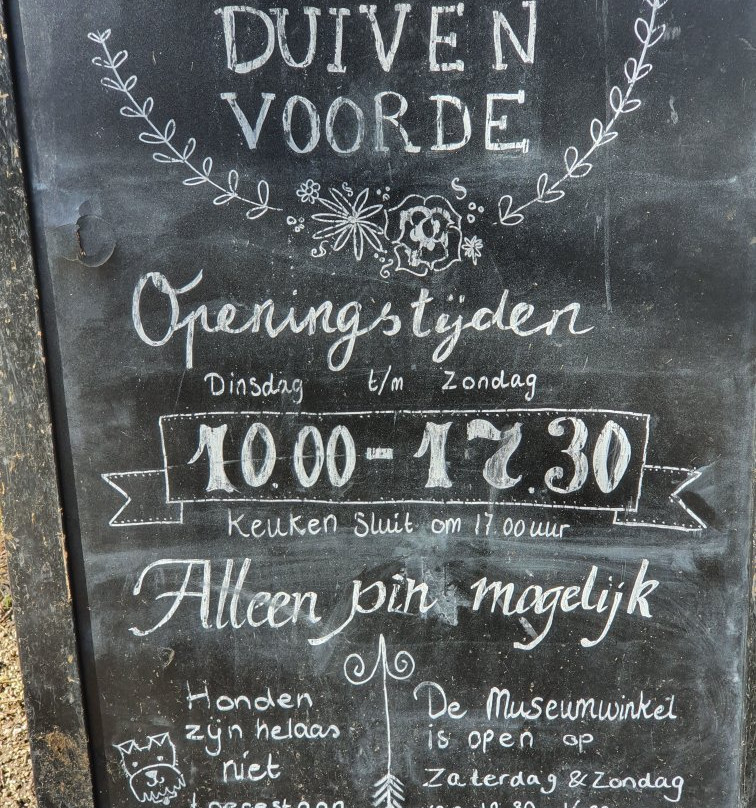 DUIVEN
VOORDE
Openingstijden
Dinsdag t/m Zondag
10.00-17.30
Keuken Sluit om 17.00 uur
Alleen pin mogelijk
Honden
zijn helaas
niet
toegestaan
De Museumwinkel
is open op
Zaterdag & Zondag